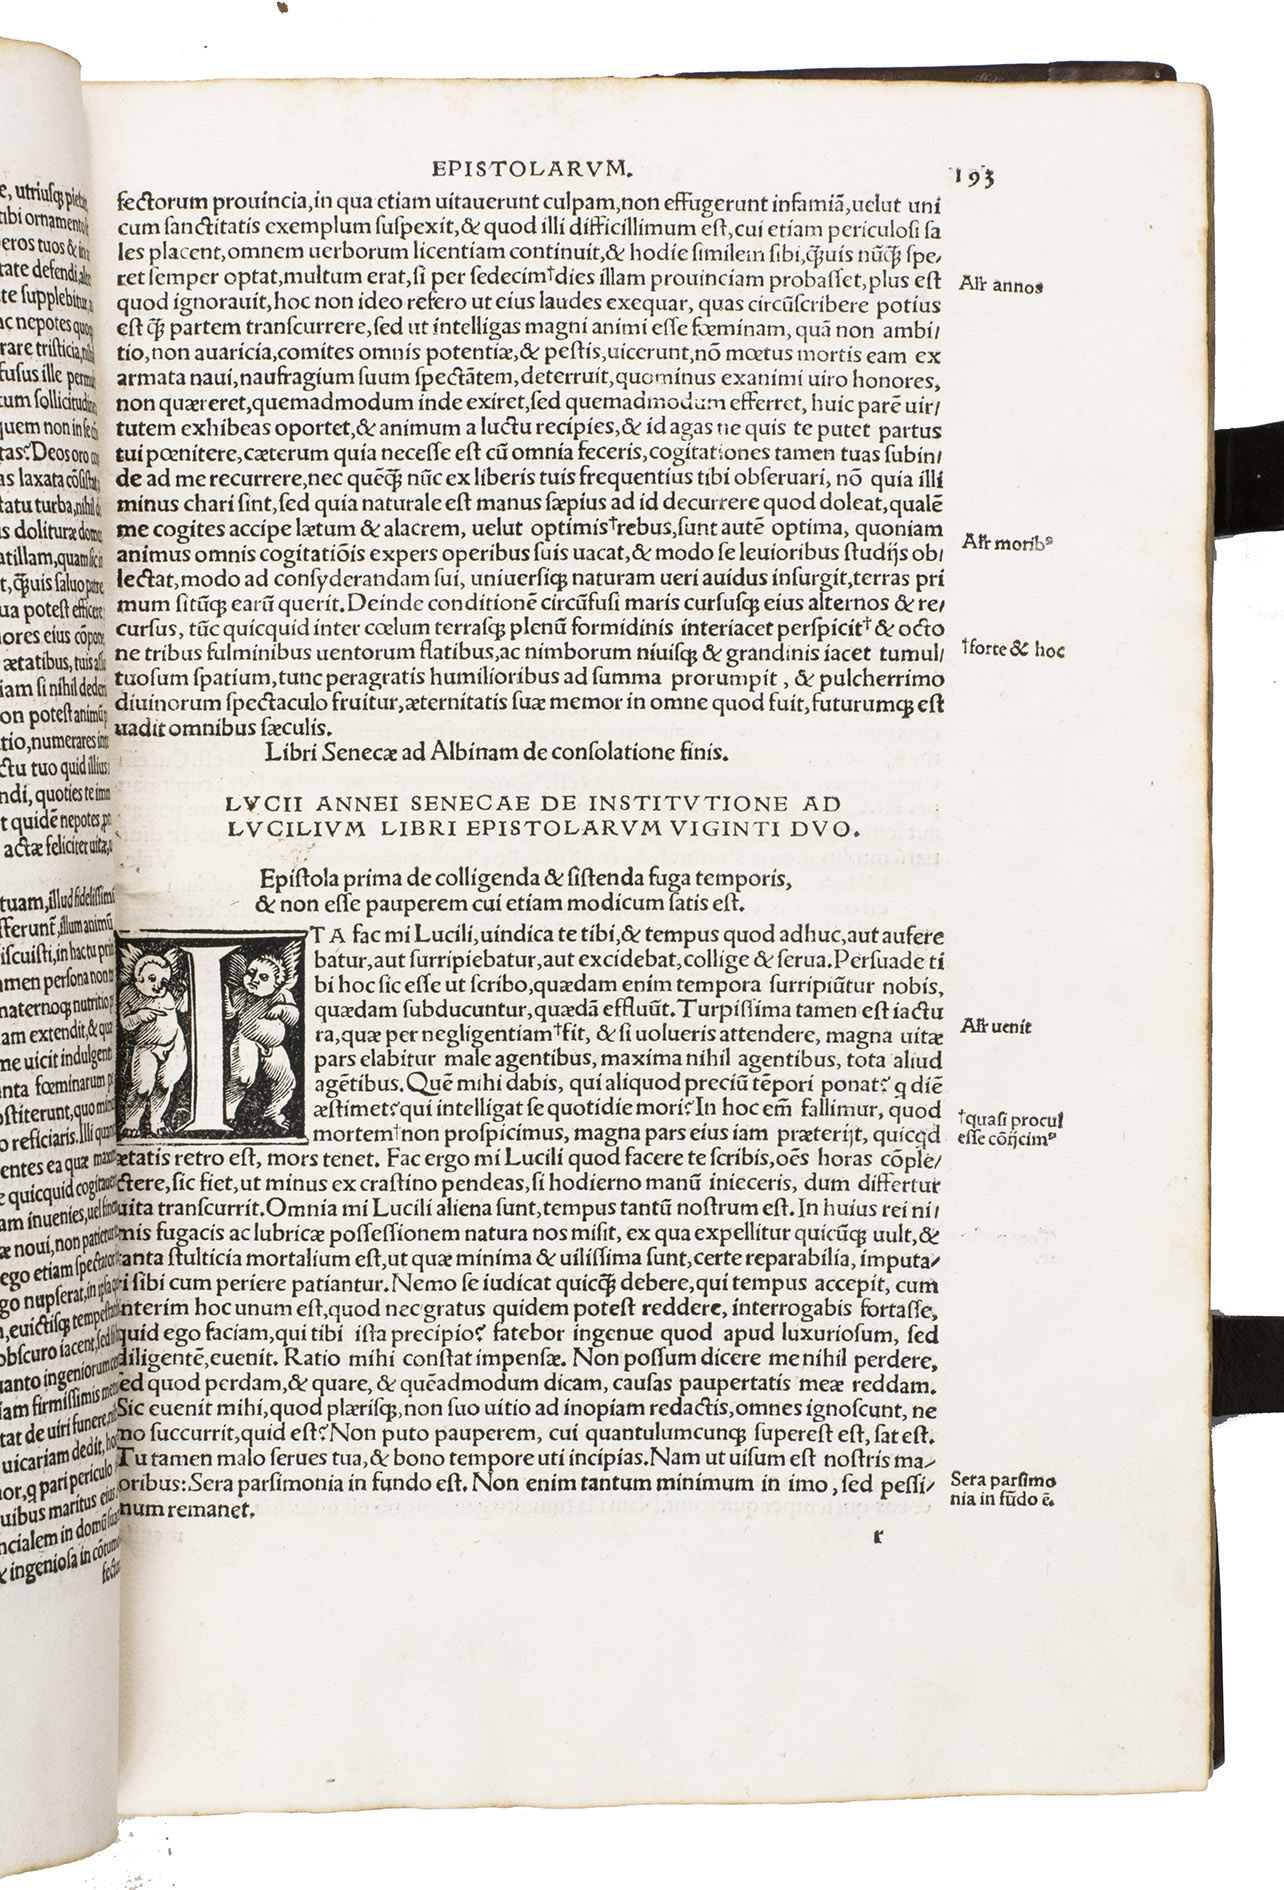 EPISTOLARVM.
193
fectorum prouincia,in qua etiam uitauerunt culpam,non effugerunt infamiã,uelut uni
cum sanctitatis exemplum suspexit,& quod illi difficillimum est,cui etiam periculosi sa
les placent,omnem uerborum licentiam continuit,& hodie similem sibi,ꝗ̃uis nũꝗ̃ spe/
ret semper optat,multum erat,si per sedecim†dies illam prouinciam probasset,plus est
Alr annos
quod ignorauit,hoc non ideo refero ut eius laudes exequar, quas circũscribere potius
est ꝗ̃ partem transcurrere,sed ut intelligas magni animi esse fœminam, quã non ambi/
tio,non auaricia,comites omnis potentiæ,& pestis,uicerunt,nõ mœtus mortis eam ex
armata naui,naufragium suum spectãtem,deterruit,quominus exanimi uiro honores,
non quæreret,quemadmodum inde exiret,sed quemadmodum efferret, huic parẽ uir/
tutem exhibeas oportet,& animum a luctu recipies,& id agas ne quis te putet partus
tui pœnitere,cæterum quia necesse est cũ omnia feceris,cogitationes tamen tuas subin/
de ad me recurrere,nec quẽꝗ̃ nũc ex liberis tuis frequentius tibi obseruari, nõ quia illi
minus chari sint,sed quia naturale est manus sæpius ad id decurrere quod doleat,qualẽ
me cogites accipe lætum & alacrem, uelut optimis†rebus,sunt autẽ optima, quoniam
Alr moribꝰ
animus omnis cogitatiõis expers operibus suis uacat,& modo se leuioribus studijs ob/
lectat,modo ad consyderandam sui, uniuersiqꝫ naturam ueri auidus insurgit,terras pri
mum sitũqꝫ earũ querit.Deinde conditionẽ circũfusi maris cursusqꝫ eius alternos & re/
cursus, tũc quicquid inter cœlum terrasqꝫ plenũ formidinis interiacet perspicit† & octo
†forte & hoc
ne tribus fulminibus uentorum flatibus,ac nimborum niuisqꝫ & grandinis iacet tumul/
tuosum spatium,tunc peragratis humilioribus ad summa prorumpit , & pulcherrimo
diuinorum spectaculo fruitur,æternitatis suæ memor in omne quod fuit,futurumqꝫ est
uadit omnibus sæculis.
Libri Senecæ ad Albinam de consolatione finis.
LVCII ANNEI SENECAE DE INSTITVTIONE AD
LVCILIVM LIBRI EPISTOLARVM VIGINTI DVO.
Epistola prima de colligenda & sistenda fuga temporis,
& non esse pauperem cui etiam modicum satis est.
ITA fac mi Lucili,uindica te tibi,& tempus quod adhuc,aut aufere
batur,aut surripiebatur,aut excidebat,collige & serua.Persuade ti
bi hoc sic esse ut scribo,quædam enim tempora surripiũtur nobis,
quædam subducuntur,quædã effluũt.Turpissima tamen est iactu
ra,quæ per negligentiam†fit, & si uolueris attendere, magna uitæ
Alr uenit
pars elabitur male agentibus, maxima nihil agentibus, tota aliud
agẽtibus.Quẽ mihi dabis, qui aliquod preciũ tẽpori ponat? q diẽ
æstimet?qui intelligat se quotidie mori?In hoc em̃ fallimur, quod
†quasi procul
mortem†non prospicimus, magna pars eius iam præterijt, quicqd
esse cõijcimꝰ
ætatis retro est, mors tenet. Fac ergo mi Lucili quod facere te scribis,oẽs horas cõple/
ctere,sic fiet,ut minus ex crastino pendeas,si hodierno manũ inieceris, dum differtur
uita transcurrit.Omnia mi Lucili aliena sunt,tempus tantũ nostrum est.In huius rei ni/
mis fugacis ac lubricæ possessionem natura nos misit, ex qua expellitur quicũqꝫ uult,&
tanta stulticia mortalium est,ut quæ minima & uilissima sunt,certe reparabilia, imputa/
ri sibi cum periere patiantur.Nemo se iudicat quicꝗ̃ debere,qui tempus accepit, cum
interim hoc unum est,quod nec gratus quidem potest reddere, interrogabis fortasse,
quid ego faciam,qui tibi ista precipio? fatebor ingenue quod apud luxuriosum, sed
diligentẽ,euenit. Ratio mihi constat impensæ. Non possum dicere me nihil perdere,
sed quod perdam,& quare, & quẽadmodum dicam, causas paupertatis meæ reddam.
Sic euenit mihi,quod plærisqꝫ,non suo uitio ad inopiam redactis,omnes ignoscunt, ne
mo succurrit,quid est? Non puto pauperem, cui quantulumcunqꝫ superest est, sat est.
Tu tamen malo serues tua,& bono tempore uti incipias. Nam ut uisum est nostris ma/
ioribus:Sera parsimonia in fundo est. Non enim tantum minimum in imo, sed pessi/
Sera parsimo
nia in fũdo ẽ.
mum remanet.
r